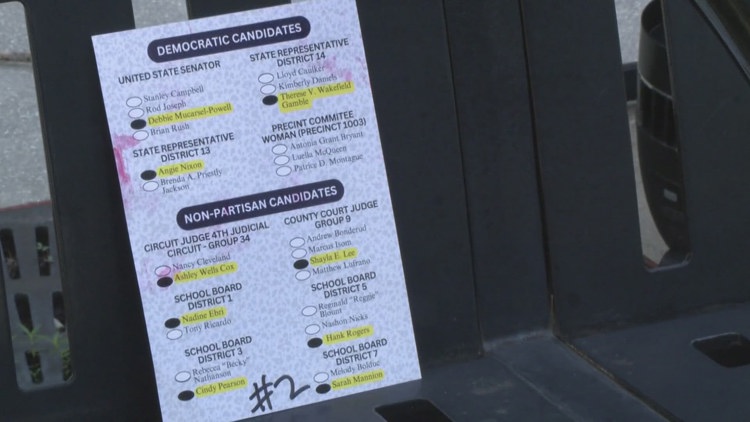 DEMOCRATIC CANDIDATES
UNITED STATE SENATOR
Stanley Campbell
Rod Joseph
Debbie Mucarsel-Powell
Brian Rush
STATE REPRESENTATIVE
DISTRICT 13
Angie Nixon
Brenda A. Priestly
Jackson
STATE REPRESENTATIVE
DISTRICT 14
Lloyd Caulker
Kimberly Daniels
Therese V. Wakefield
Gamble
PRECINT COMMITEE
WOMAN (PRECINCT 1003)
Antonia Grant Bryant
Luella McQueen
Patrica D. Montague
NON-PARTISAN CANDIDATES
CIRCUIT JUDGE 4TH JUDICIAL
CIRCUIT - GROUP 34
Nancy Cleveland
Ashley Wells Cox
SCHOOL BOARD
DISTRICT 1
Nadine Ebri
Tony Ricardo
SCHOOL BOARD
DISTRICT 3
Rebecca "Becky"
Nathanson
Cindy Pearson
COUNTY COURT JUDGE
GROUP 9
Andrew Bonderud
Marcus Isom
Shayla E. Lee
Matthew Lufrano
SCHOOL BOARD
DISTRICT 5
Reginald "Reggie"
Blount
Nashon Nicks
Hank Rogers
SCHOOL BOARD
DISTRICT 7
Melody Bolduc
Sarah Mannion
#2